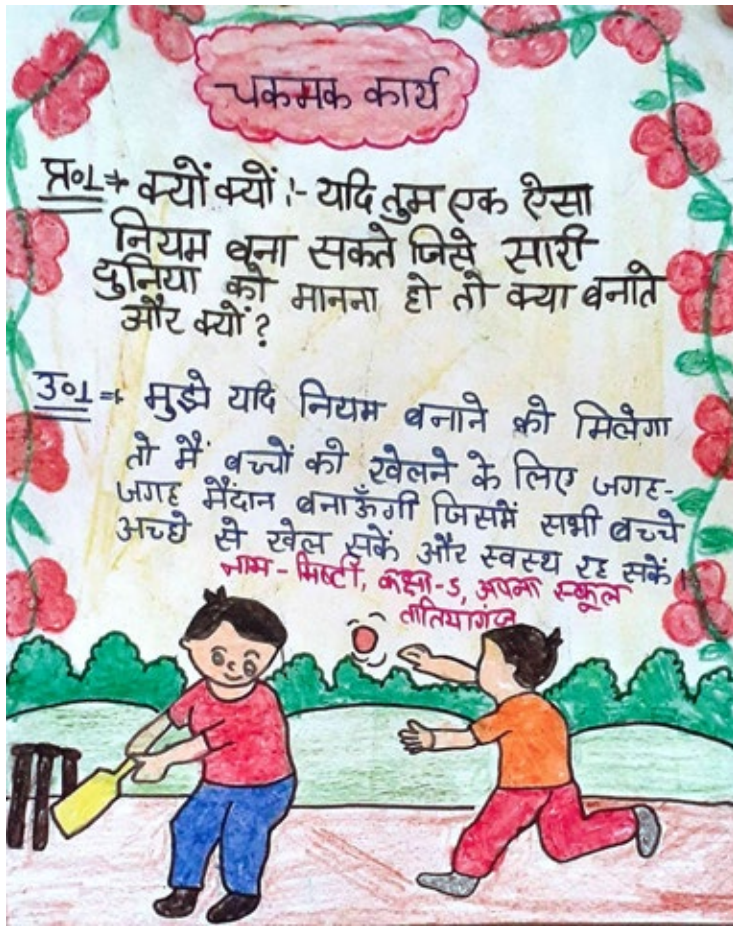 चकमक कार्य
प्र०1⇒ क्यों क्यों :- यदि तुम एक ऐसा
नियम बना सकते जिसे सारी
दुनिया को मानना हो तो क्या बनाते
और क्यों ?
उ०1⇒ मुझे यदि नियम बनाने को मिलेगा
तो मैं बच्चों को खेलने के लिए जगह-
जगह मैंदान बनाऊँगी जिसमें सभी बच्चे
अच्छे से खेल सकें और स्वस्थ रह सकें।
नाम - मिष्टी, कक्षा-5, अपना स्कूल
तातियागंज